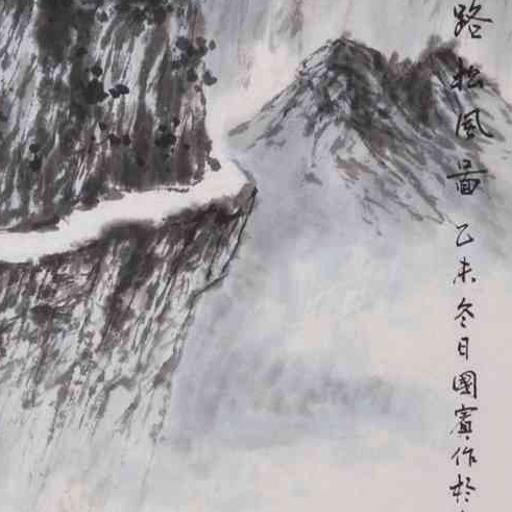 路松風圖乙未冬日國賓作於